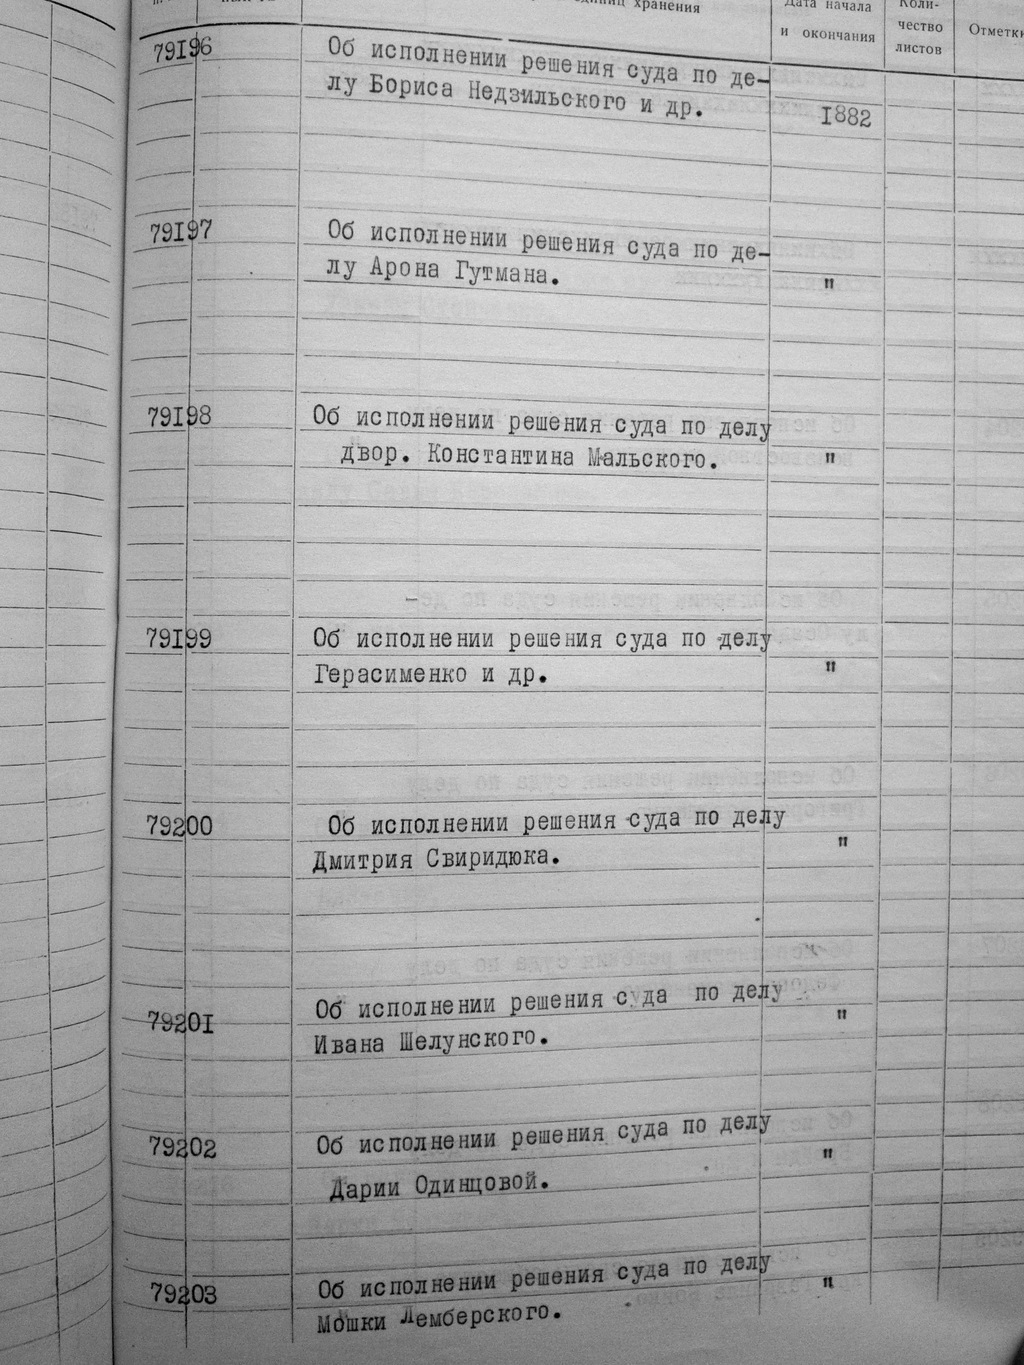 единиц хранения
Дата начала
и окончания
Коли-
чество
листов
Отметки
79I96
Об исполнении решения суда по де-
лу Бориса Недзильского и др.
I882
79I97
Об исполнении решения суда по де-
лу Арона Гутмана.
"
79I98
Об исполнении решения суда по делу
двор. Константина Мальского.
"
79I99
Об исполнении решения суда по делу
Герасименко и др.
"
79200
Об исполнении решения суда по делу
Дмитрия Свиридюка.
"
7920I
Об исполнении решения суда по делу
Ивана Шелунского.
"
79202
Об исполнении решения суда по делу
Дарии Одинцовой.
"
79203
Об исполнении решения суда по делу
Мошки Лемберского.
"